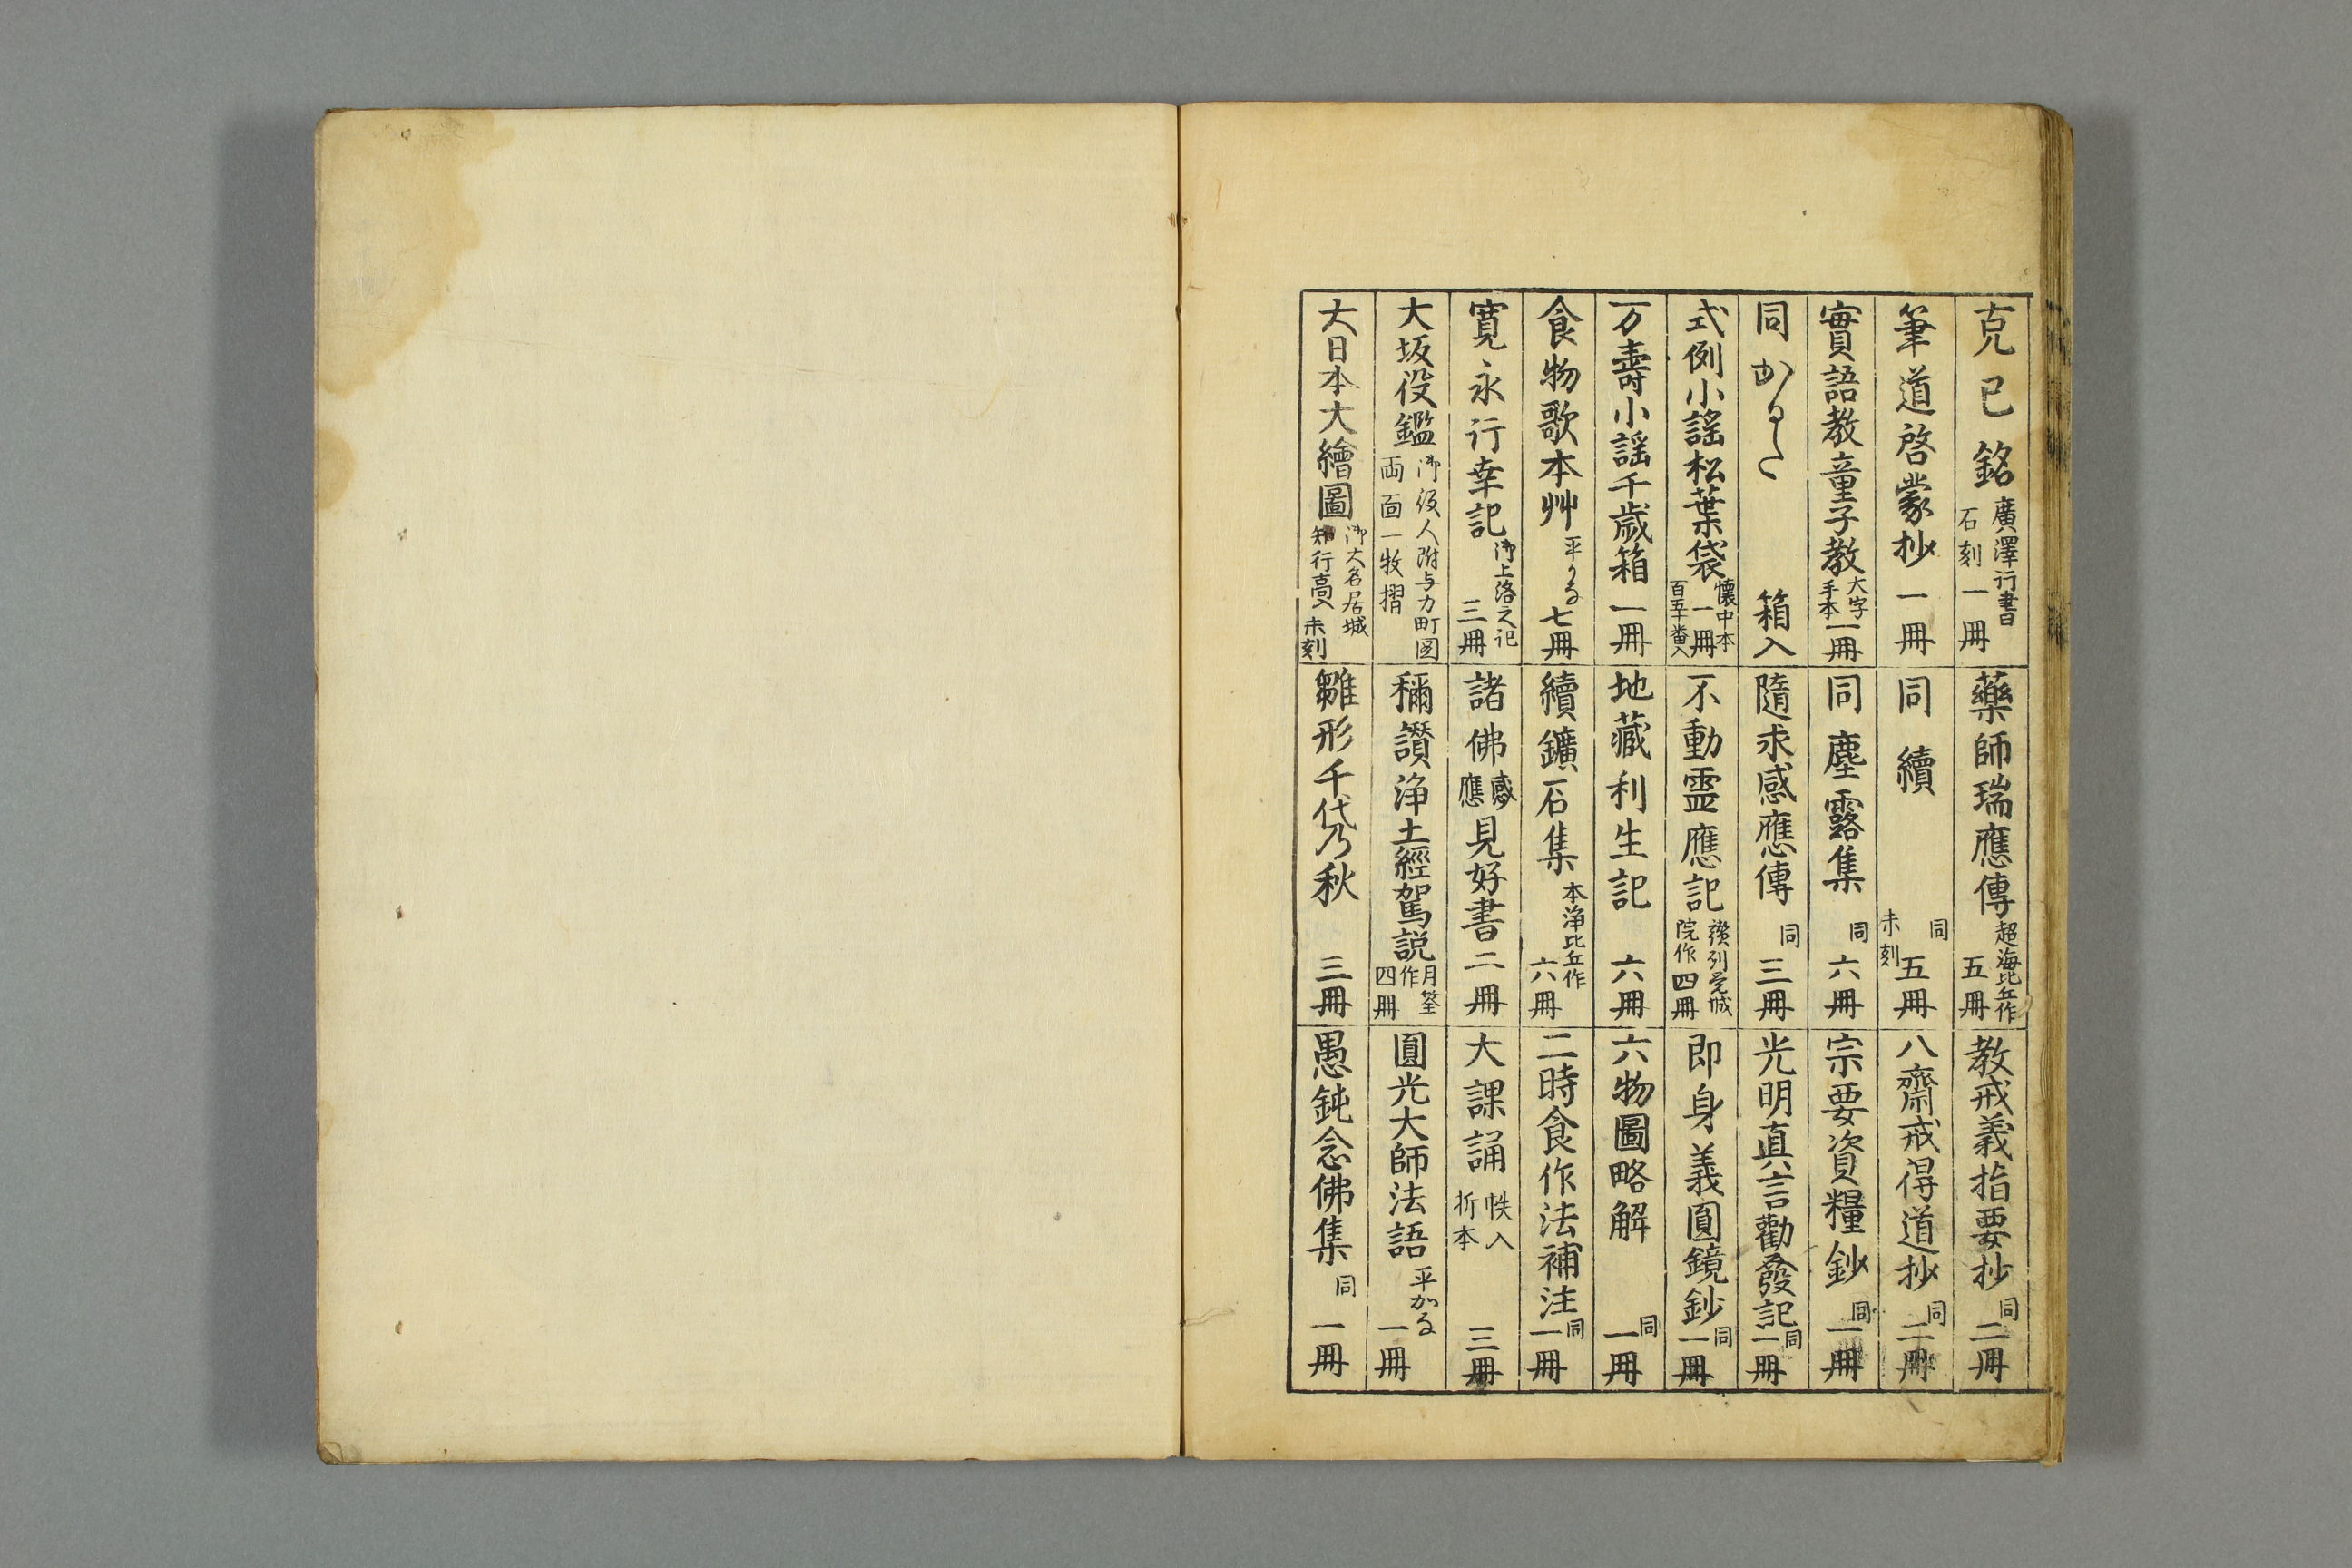 克己銘 廣澤行書 石刻 一冊
筆道啓蒙抄 一冊
實語教童子教 大字 手本 一冊
同かるた 箱入
式例小謡松葉袋 懐中本 一冊 百五十番入
万壽小謡千歳箱 一冊
食物歌本艸 平かな 七冊
寛永行幸記 御上洛之記 三冊
大坂役鑑 御役人附与力町圖 両面一牧摺
大日本大繪圖 御大名居城 知行高入 未刻
藥師瑞應傳 超海比丘作 五冊
同續 同 未刻 五冊
同塵露集 同 六冊
隨求感應傳 同 三冊
不動霊應記 讃列覚城 院作 四冊
地藏利生記 六冊
續鑛石集 本浄比丘作 六冊
諸佛感應見好書 二冊
稱讃浄土經駕説 月筌作 四冊
雛形千代乃秋 三冊
教戒義指要抄 同 二冊
八齋戒得道抄 同 二冊
宗要資糧鈔 同 一冊
光明真言勸發記 同 一冊
即身義圓鏡鈔 同 一冊
六物圖略解 同 一冊
二時食作法補注 同 一冊
大課誦 帙入 折本 三冊
圓光大師法語 平かな 一冊
愚鈍念佛集 同 一冊